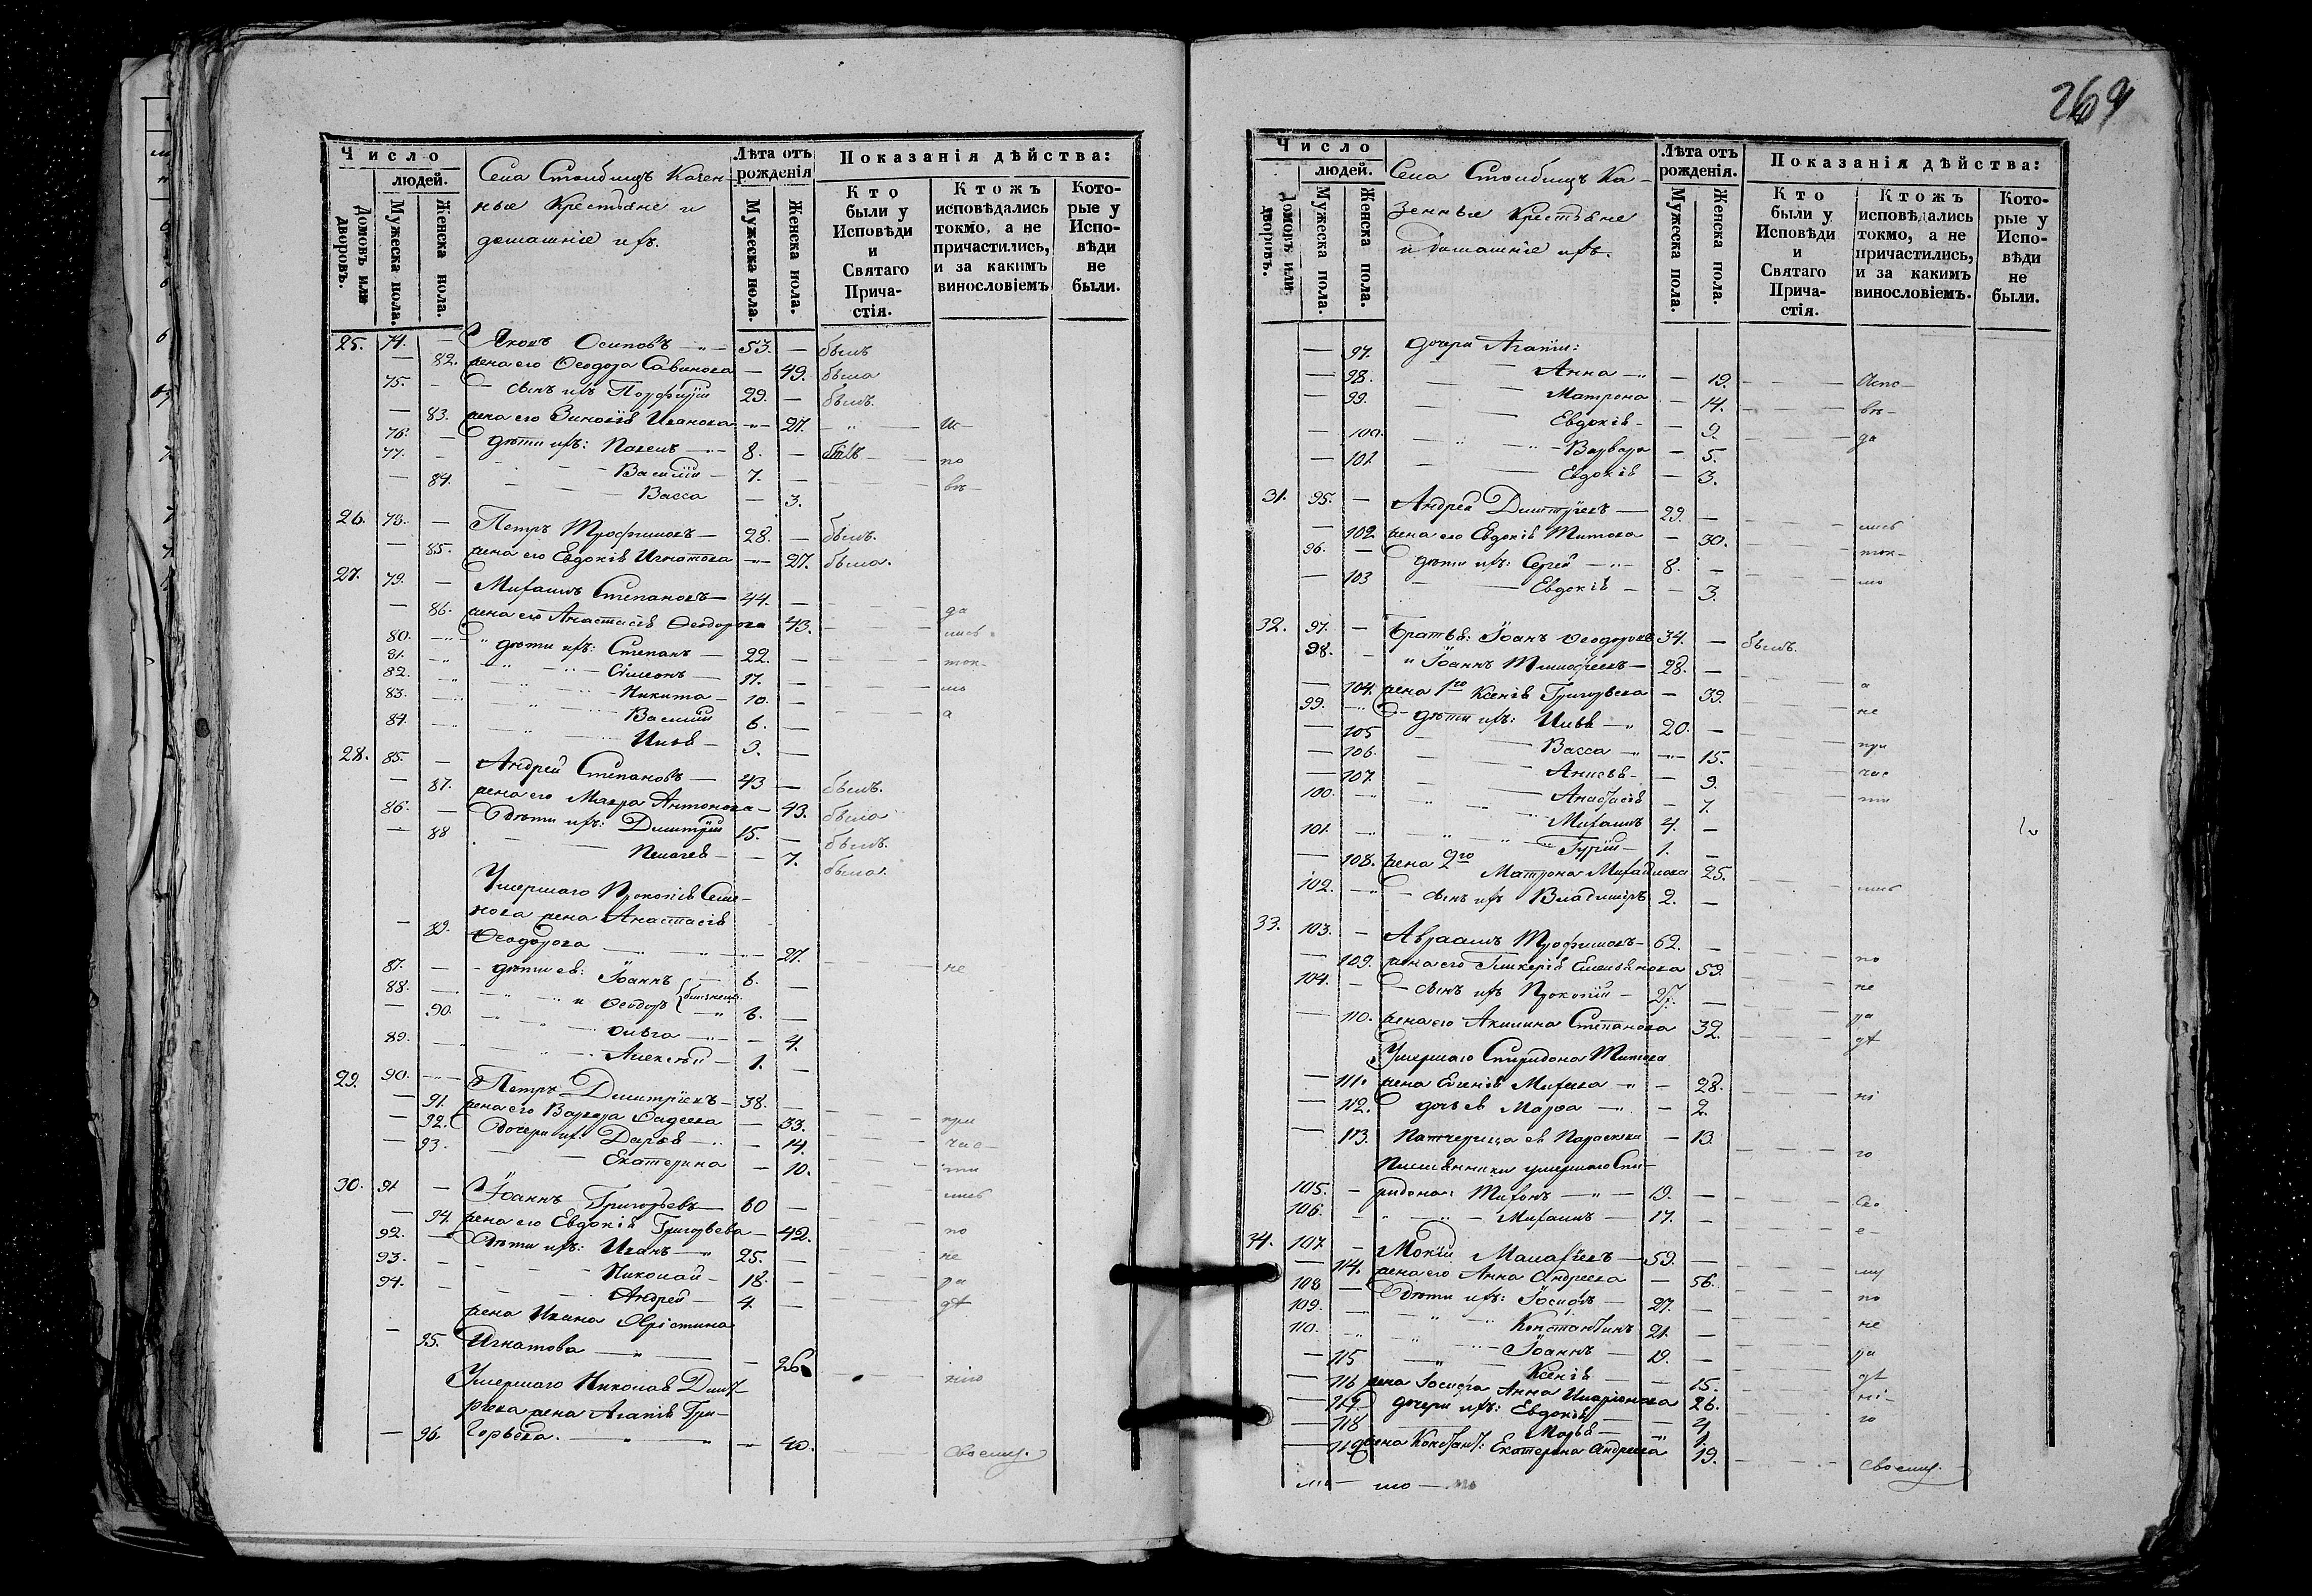 269
Число
людей.
Домовъ или дворовъ.
Мужеска пола.
Женска пола.
Села Столбищъ Казен-
ные Крестьяне и
домашніе ихъ.
Лѣта отъ рожденія
Мужеска пола.
Женска пола.
Показанія дѣйства:
Кто были у Исповѣди и Святаго Прича-стія.
Ктожъ исповѣдались токмо, а не причастились, и за какимъ винословіемъ
Кото-рые у Испо-вѣди не были.
25. 74. — Яковъ Осиповъ — 53. — былъ
— 82. жена его Ѳеодора Савинова — 49. была
75. — сынъ ихъ Порфирій 29. — былъ.
— 83. жена его Зиновія Иванова — 27. — Ис—
76. — дѣти ихъ: Павелъ — 8. —
77. — Василій — 7. — по
— 84. Васса — 3. — вѣ—
26. 78. — Петръ Трофимовъ — 28. — былъ.
— 85. жена его Евдокія Игнатова — 27. была.
27. 79. — Михаилъ Степановъ — 44. — да
— 86. жена его Анастасія Ѳеодорова 43. — лись
80. — дѣти ихъ: Степанъ — 22. — ток—
81. — Сімеонъ — 17. — мо
82. — Никита — 10. — а
83. — Василій 6. —
84. — Илья — 3. —
28. 85. — Андрей Степановъ — 43 — былъ.
— 87. жена его Мавра Антонова — 43. была
86. — Дѣти ихъ: Димитрій 15. — былъ.
— 88 Пелагея — 7. была.
Умершаго Прокопія Семе-
нова жена Анастасія
— 89. Ѳеодорова — 27. — не
87. — дѣти ея: Іоаннъ — 6. —
88. — и Ѳеодоръ {близнецы. — 6. —
— 90. Ольга — 4.
89. — Алексѣй — 1. —
29. 90. — Петръ Димитріевъ — 38. — при
— 91. жена его Варвара Фадеева — 33. — час—
— 92. Дочери ихъ: Дарья — 14. — ти
— 93. Екатерина — 10. — лись
30. 91 — Іоаннъ Григорьевъ — 60 — по
— 94. жена его Евдокія Григорьева — 42. — не
92. — Дѣти ихъ: Иванъ — 25. — ра
93. — Николай — 18. — дѣ
94. — Андрей — 4. —
жена Ивана Хрістина
— 95. Игнатова — 26. — нію
Умершаго Николая Димит-
ріева жена Агапія Гри-
— 96. горьева. — 40. — своему.
Число
людей.
Домовъ или дворовъ.
Мужеска пола.
Женска пола.
Села Столбищъ Ка-
зенные Крестьяне
и домашніе ихъ.
Лѣта отъ рожденія.
Мужеска пола.
Женска пола.
Показанія дѣйства:
Кто были у Исповѣди и Святаго Прича-стія.
Ктожъ исповѣдались токмо, а не причастились, и за какимъ винословіемъ.
Кото-рые у Испо-вѣди не были.
— 97. дочери Агапіи:
— 98. Анна — 19. — Испо—
— 99. Матрона — 14. — вѣ—
— 100. Евдокія — 9. — да
— 101. Варвара — 5.
Евдокія — 3.
31. 95. — Андрей Димитріевъ — 29. — лись
— 102. жена его Евдокія Титова — 30. — ток—
96. — дѣти ихъ: Сергей — 8. — мо
— 103 Евдокія — 3.
32. 97. — братья: Іоанъ Ѳеодоровъ 34. — былъ.
98. — и Іоаннъ Тимоѳеевъ — 28. — а
— 104. жена 1го Ксенія Григорьева — 39. — не
99. — дѣти ихъ: Илья — 20. — при
— 105 Васса — 15. — час
— 106. Анисья — 9. — ти
— 107. Анастасія — 7.
100. — Михаилъ 4. —
101. — Гурій — 1. —
— 108. жена 2го Матрона Михайлова 25. — лись
102. — сынъ ихъ Владиміръ 2. —
33. 103. — Авраамъ Трофимовъ — 62. — по
— 109. жена его Гликерія Емельянова 59. — не
104. — сынъ ихъ Прокопій — 27. — ра
— 110. жена его Акилина Степанова 32. — дѣ
Умершаго Спиридона Титова
— 111. жена Евгенія Михеева — 28. — ні
— 112. дочь ея Марѳа — 2.
— 113. Патчерица ея Параскева — 13. — ю
Племянники умершаго Спи-
105. — ридона: Тихонъ — 19. — сво
106. — Михаилъ — 17. — е—
34. 107. — Мокій Малафеевъ — 59. — му
— 114. жена его Анна Андреева — 56. — по
108 — Дѣти ихъ: Іосифъ — 27. — не
109. — Константинъ 21. — ра
110. — Іоаннъ — 19. — дѣ
— 115 Ксенія — 15. — ні—
— 116 жена Іосифа Анна Иларіонова 26. — ю
— 117. дочери ихъ: Евдокія — 4.
— 118 Марья — 1.
— 119 жена Констант: Екатерина Андреева 19. — своему.